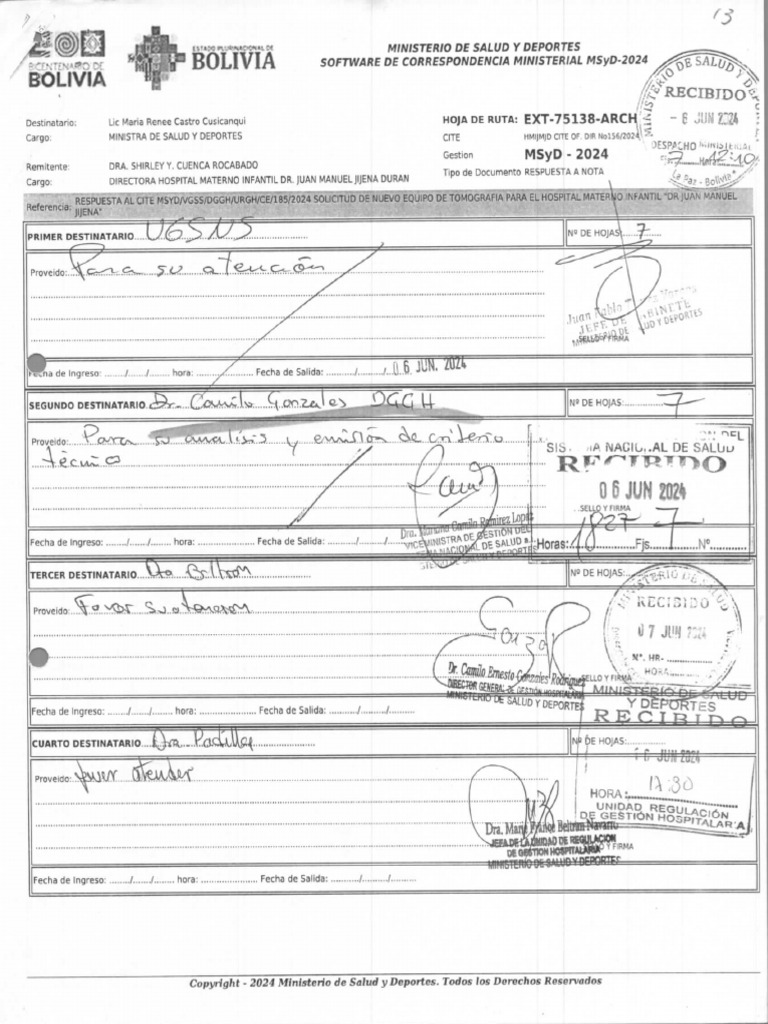 13
BICENTENARIO DE
BOLIVIA
ESTADO PLURINACIONAL DE
BOLIVIA
MINISTERIO DE SALUD Y DEPORTES
SOFTWARE DE CORRESPONDENCIA MINISTERIAL MSyD-2024
MINISTERIO DE SALUD Y
RECIBIDO
- 6 JUN 2024
DESPACHO MINISTERIAL
7 Hora: 12:10
La Paz - Bolivia
Destinatario: Lic Maria Renee Castro Cusicanqui
Cargo: MINISTRA DE SALUD Y DEPORTES
Remitente: DRA. SHIRLEY Y. CUENCA ROCABADO
Cargo: DIRECTORA HOSPITAL MATERNO INFANTIL DR. JUAN MANUEL JIJENA DURAN
HOJA DE RUTA: EXT-75138-ARCH
CITE HMIJMJD CITE OF. DIR No156/2024
Gestion MSyD - 2024
Tipo de Documento RESPUESTA A NOTA
Referencia: RESPUESTA AL CITE MSYD/VGSS/DGGH/URGH/CE/185/2024 SOLICITUD DE NUEVO EQUIPO DE TOMOGRAFIA PARA EL HOSPITAL MATERNO INFANTIL "DR JUAN MANUEL
JIJENA"
PRIMER DESTINATARIO VGSNS Nº DE HOJAS: 7
Proveido: Para su atención
Juan Pablo
JEFE DE GABINETE
MINISTERIO DE SALUD Y DEPORTES
SELLO Y FIRMA
Fecha de Ingreso: ......./....../...... hora: .................. Fecha de Salida: ........./......./....... 06 JUN. 2024
SEGUNDO DESTINATARIO Dr. Camilo Gonzales DGGH Nº DE HOJAS: 7
Proveido: Para su analisis y emisión de criterio
técnico
SISTEMA NACIONAL DE SALUD
RECIBIDO
06 JUN 2024
SELLO Y FIRMA
Horas: 1827 Fjs. 7 Nº
Dra. Mariana Camilo Ramirez Lopez
VICEMINISTRA DE GESTIÓN DEL
SISTEMA NACIONAL DE SALUD a.i.
MINISTERIO DE SALUD Y DEPORTES
Fecha de Ingreso: ......./....../...... hora: .................. Fecha de Salida: ........./......./.......
TERCER DESTINATARIO Dra Beltran Nº DE HOJAS:
Proveido: Favor su atencion
MINISTERIO DE SALUD
RECIBIDO
07 JUN 2024
Nº. HR-
HORA
Dr. Camilo Ernesto Gonzales Rodriguez
DIRECTOR GENERAL DE GESTIÓN HOSPITALARIA
MINISTERIO DE SALUD Y DEPORTES
SELLO Y FIRMA
Fecha de Ingreso: ......./....../...... hora: .................. Fecha de Salida: ........./......./.......
MINISTERIO DE SALUD
Y DEPORTES
RECIBIDO
CUARTO DESTINATARIO Dra Padilla Nº DE HOJAS:
10 JUN 2024
Proveido: favor atender
HORA: 17:30
UNIDAD REGULACIÓN
DE GESTIÓN HOSPITALARIA
Dra. Marie France Beltran Navarro
JEFA DE LA UNIDAD DE REGULACION
DE GESTIÓN HOSPITALARIA
MINISTERIO DE SALUD Y DEPORTES
SELLO Y FIRMA
Fecha de Ingreso: ......./....../...... hora: .................. Fecha de Salida: ........./......./.......
Copyright - 2024 Ministerio de Salud y Deportes. Todos los Derechos Reservados